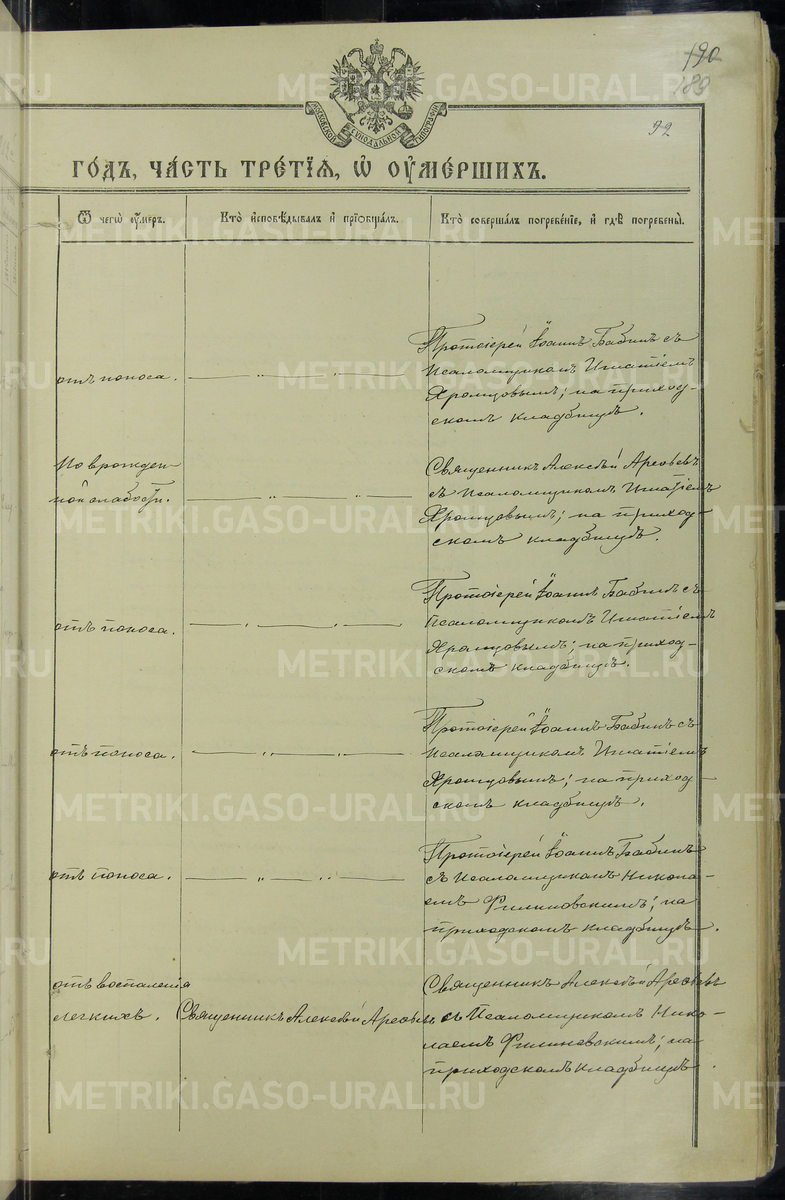 190
189
92
МОСКОВСКОЙ СѴНОДАЛЬНОЙ ТИПОГРАФІИ
ГО́ДЪ, ЧА́СТЬ ТРЕ́ТІѦ, Ѡ҆ ОУ҆МЕ́РШИХЪ.
Ѿ чегѡ̀ оу҆́меръ.
Кто̀ и҆сповѣ́дывалъ и҆ прїѡбща́лъ.
Кто̀ соверша́лъ погребе́нїе, и҆ гдѣ̀ погребены̀.
отъ поноса.
Протоіерей Іоаннъ Бабинъ съ
Псаломщикомъ Игнатіемъ
Хромцовымъ; на приход-
скомъ кладбищѣ.
По врожден-
ной слабости.
Священникъ Алексѣй Арефьевъ
съ Псаломщикомъ Игнатіемъ
Хромцовымъ; на приход-
скомъ кладбищѣ.
отъ поноса.
Протоіерей Іоаннъ Бабинъ съ
Псаломщикомъ Игнатіемъ
Хромцовымъ; на приход-
скомъ кладбищѣ.
отъ поноса.
Протоіерей Іоаннъ Бабинъ съ
Псаломщикомъ Игнатіемъ
Хромцовымъ; на приход-
скомъ кладбищѣ.
отъ поноса.
Протоіерей Іоаннъ Бабинъ
съ Псаломщикомъ Никола-
емъ Филиновскимъ; на
приходскомъ кладбищѣ.
отъ воспаленія
легкихъ.
Священникъ Алексѣй Арефьевъ
Священникъ Алексѣй Арефьевъ
съ Псаломщикомъ Нико-
лаемъ Филиновскимъ; на
приходскомъ кладбищѣ.
METRIKI.GASO-URAL.RU